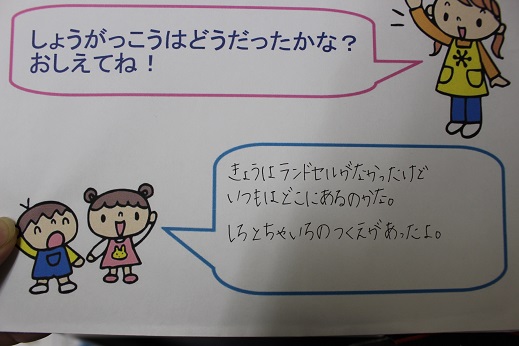 しょうがっこうはどうだったかな？
おしえてね！
きょうはランドセルがなかったけど
いつもはどこにあるのかな。
しろとちゃいろのつくえがあったよ。